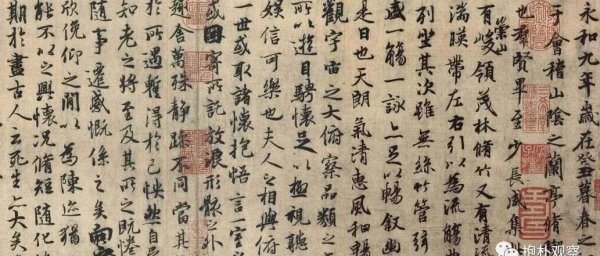 永和九年歲在癸丑暮春之
于會稽山陰之蘭亭脩
也群賢畢至少長咸集
有崇山峻領茂林脩竹又有清流
湍暎帶左右引以為流觴曲
列坐其次雖無絲竹管弦
盛一觴一詠亦足以暢敘幽
是日也天朗氣清惠風和暢
觀宇宙之大俯察品類之
所以遊目騁懷足以極視聽
娛信可樂也夫人之相與俯
一世或取諸懷抱悟言一室
或因寄所託放浪形骸之外
趣舍萬殊靜躁不同當其
於所遇蹔得於己怏然自
知老之將至及其所之既惓
隨事遷感慨係之矣向
欣俛仰之閒以為陳迹猶
能不以之興懷況脩短隨化
期於盡古人云死生亦大矣
抱朴观察